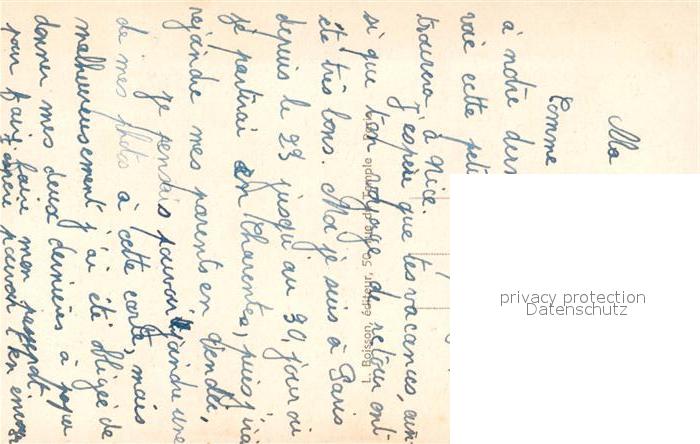 Ma
Comme
à notre
voie cette
trouvera à Nice.
J'espère que tes vacances, ain-
si que ton voyage de retour ont
été très bons. Moi je suis à Paris
depuis le 23 jusqu'au 30, jour où
je partirai en Charentes, puis j'irai
rejoindre mes parents en Vendée,
je pensais pouvoir joindre une
de mes photos à cette carte, mais
malheureusement j'ai été obligée de
donner mes deux dernières à papa
pour faire mon passeport
pouvoir t'en
L. Boisson, éditeur, 50, rue du Temple Paris
privacy protection
Datenschutz